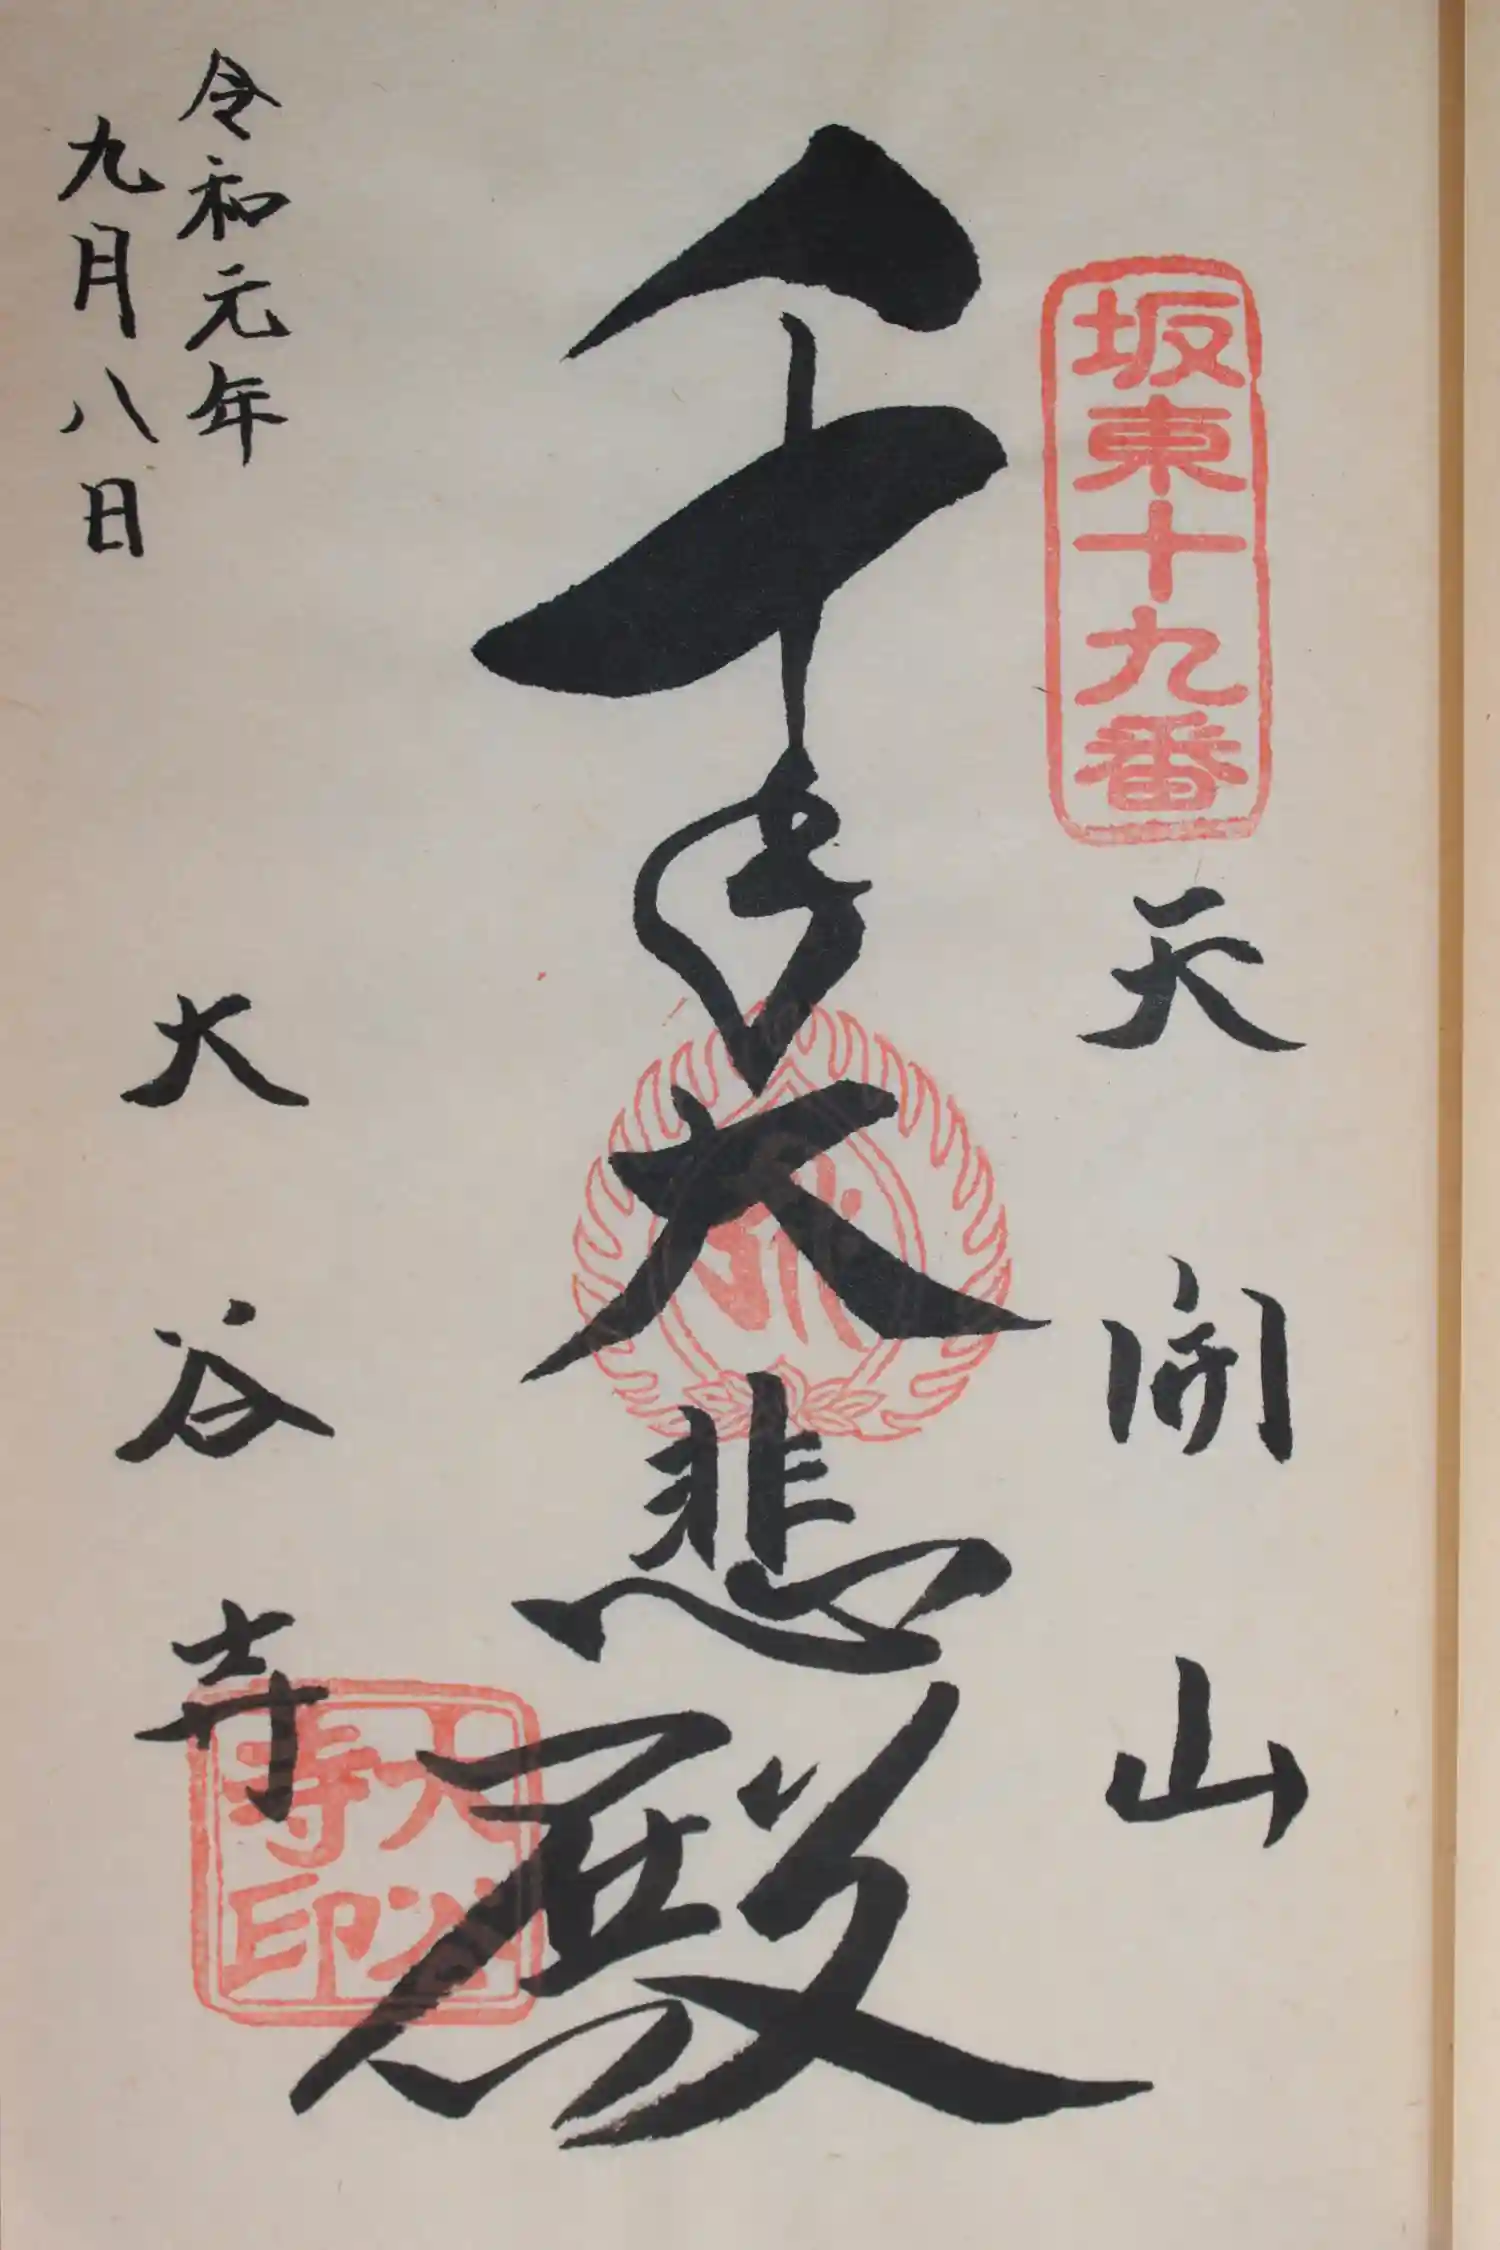 坂東十九番
天開山
千手大悲殿
令和元年
九月八日
大谷寺
大谷
寺印